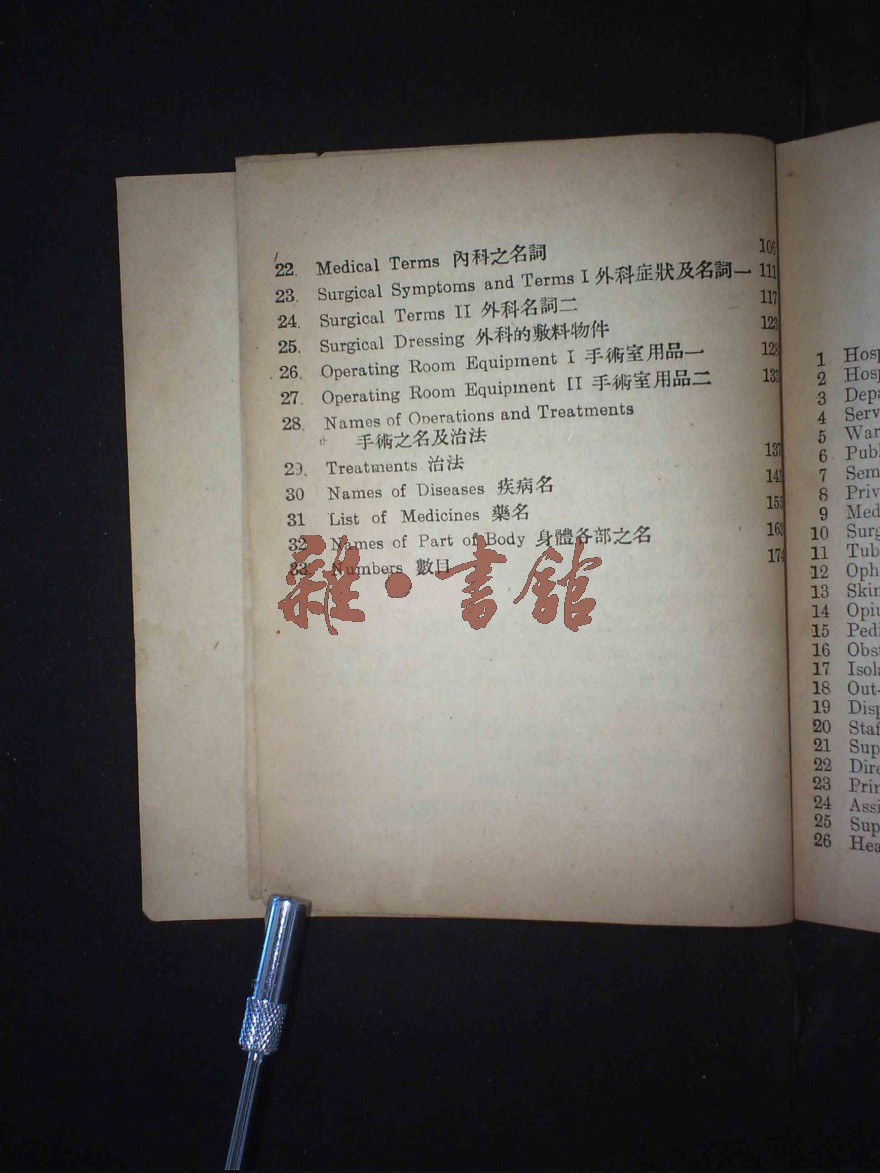 22. Medical Terms 內科之名詞 106
23. Surgical Symptoms and Terms I 外科症狀及名詞一 111
24. Surgical Terms II 外科名詞二 117
25. Surgical Dressing 外科的敷料物件 123
26. Operating Room Equipment I 手術室用品一 128
27. Operating Room Equipment II 手術室用品二
28. Names of Operations and Treatments
手術之名及治法 137
29. Treatments 治法 141
30 Names of Diseases 疾病名 155
31 List of Medicines 藥名 163
32 Names of Part of Body 身體各部之名 174
33. Numbers 數目
雜·書館
1 Hosp
2 Hosp
3 Depa
4 Serv
5 War
6 Publ
7 Sem
8 Priv
9 Med
10 Surg
11 Tub
12 Oph
13 Skin
14 Opiu
15 Pedi
16 Obst
17 Isola
18 Out-
19 Disp
20 Staf
21 Sup
22 Dire
23 Prin
24 Assi
25 Sup
26 Hea